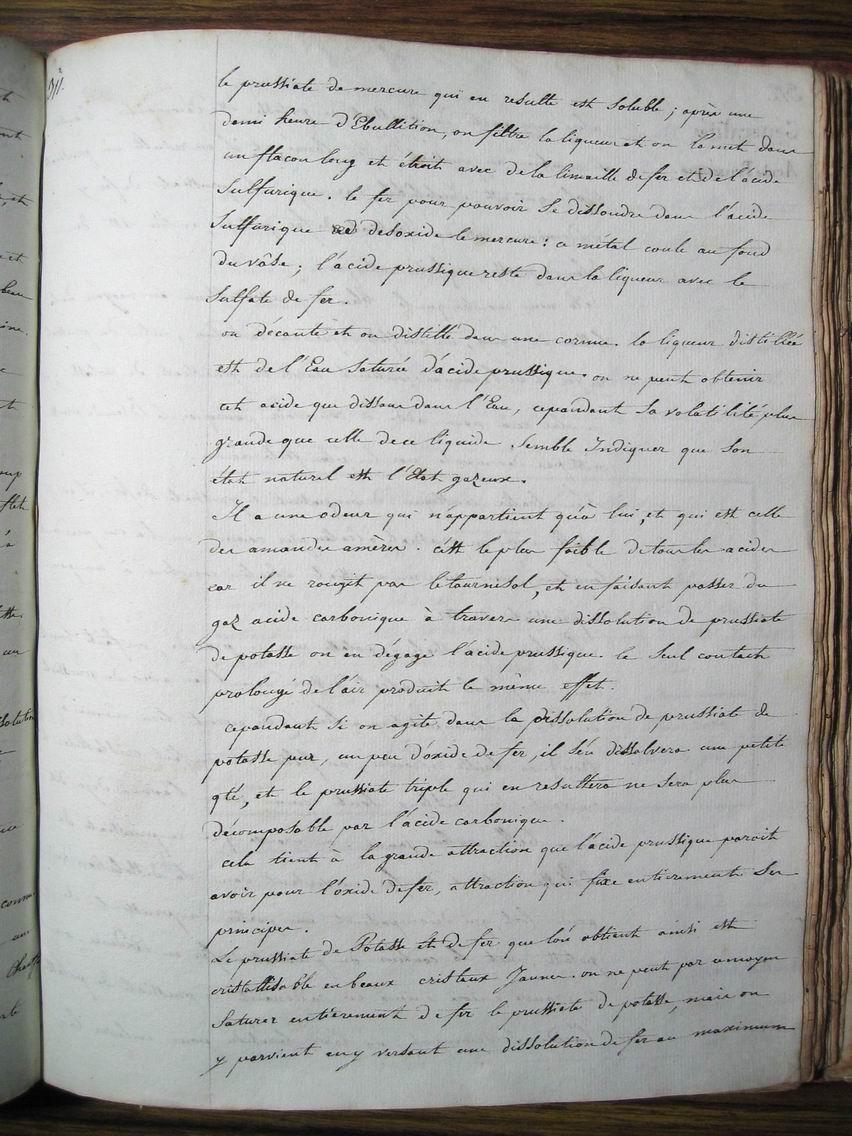 le prussiate de mercure qui en resulte est soluble ; après une
demi heure d'Ebullition, on filtre la liqueur et on la met dans
un flacon long et étroit avec de la limaille de fer et de l'acide
Sulfurique. le fer pour pouvoir Se dissoudre dans l'acide
Sulfurique desoxide le mercure : ce métal coule au fond
du vâse ; l'acide prussique reste dans la liqueur avec le
Sulfate de fer.
on décante et on distille dans une cornue. la liqueur distillée
est de l'Eau Saturée d'acide prussique. on ne peut obtenir
cet acide que dissous dans l'Eau, cependant Sa volatilité plus
grande que celle de ce liquide Semble Indiquer que Son
état naturel est l'Etat gazeux.
Il a une odeur qui n'appartient qu'à lui, et qui est celle
des amandes amères. c'est le plus foible de tous les acides
car il ne rougit pas le tournesol, et en faisant passer du
gaz acide carbonique à travers une dissolution de prussiate
de potasse on en dégage l'acide prussique. le Seul contact
prolongé de l'air produit le même effet.
cependant Si on agite dans la dissolution de prussiate de
potasse pur, un peu d'oxide de fer, il S'en dissolvera une petite
qté, et le prussiate triple qui en resultera ne Sera plus
décomposable par l'acide carbonique.
cela tient à la grande attraction que l'acide prussique paroit
avoir pour l'oxide de fer, attraction qui fixe entierement Ses
principes.
Le prussiate de Potasse et de fer que l'on obtient ainsi est
cristallisable en beaux cristaux Jaunes. on ne peut par moyen
Saturer entièrement de fer le prussiate de potasse, mais on
y parvient en y versant une dissolution de fer au maximum